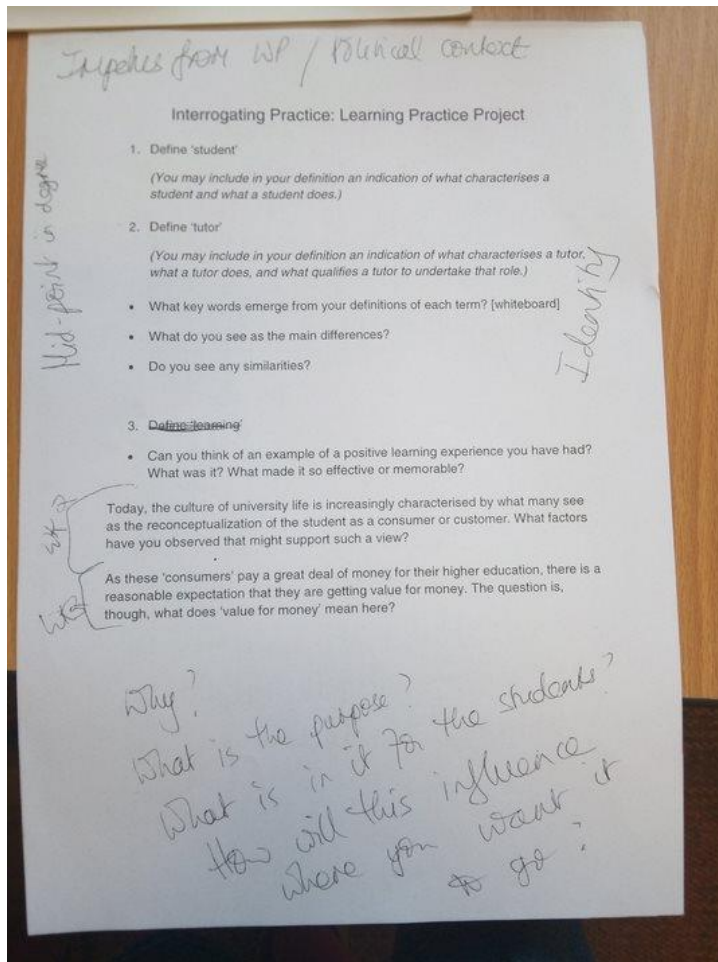 Impetus from WP / Political context
Interrogating Practice: Learning Practice Project
1. Define 'student'
(You may include in your definition an indication of what characterises a
student and what a student does.)
2. Define 'tutor'
(You may include in your definition an indication of what characterises a tutor,
what a tutor does, and what qualifies a tutor to undertake that role.)
• What key words emerge from your definitions of each term? [whiteboard]
• What do you see as the main differences?
• Do you see any similarities?
Mid-point in degree
Identity
3. Define 'learning'
• Can you think of an example of a positive learning experience you have had?
What was it? What made it so effective or memorable?
Today, the culture of university life is increasingly characterised by what many see
as the reconceptualization of the student as a consumer or customer. What factors
have you observed that might support such a view?
As these 'consumers' pay a great deal of money for their higher education, there is a
reasonable expectation that they are getting value for money. The question is,
though, what does 'value for money' mean here?
Why?
What is the purpose?
What is in it for the students?
How will this influence
where you want it
to go?